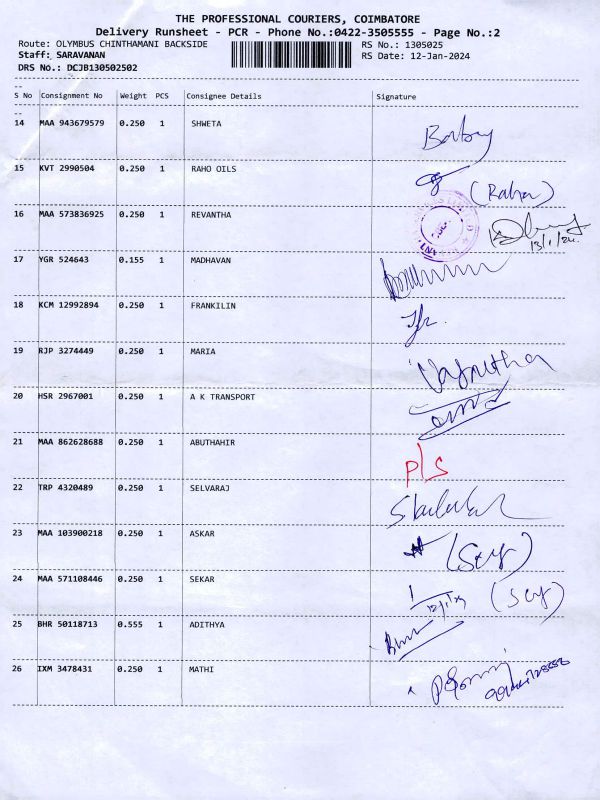 THE PROFESSIONAL COURIERS, COIMBATORE
Delivery Runsheet - PCR - Phone No.:0422-3505555 - Page No.:2
Route: OLYMBUS CHINTHAMANI BACKSIDE RS No.: 1305025
Staff: SARAVANAN RS Date: 12-Jan-2024
DRS No.: DCJB130502502
S No Consignment No Weight PCS Consignee Details Signature
14 MAA 943679579 0.250 1 SHWETA
15 KVT 2990504 0.250 1 RAHO OILS
16 MAA 573836925 0.250 1 REVANTHA
13/1/24.
17 YGR 524643 0.155 1 MADHAVAN
18 KCM 12992894 0.250 1 FRANKILIN
19 RJP 3274449 0.250 1 MARIA
20 HSR 2967001 0.250 1 A K TRANSPORT
21 MAA 862628688 0.250 1 ABUTHAHIR
P/S
22 TRP 4320489 0.250 1 SELVARAJ
23 MAA 103900218 0.250 1 ASKAR
24 MAA 571108446 0.250 1 SEKAR
25 BHR 50118713 0.555 1 ADITHYA
26 IXM 3478431 0.250 1 MATHI